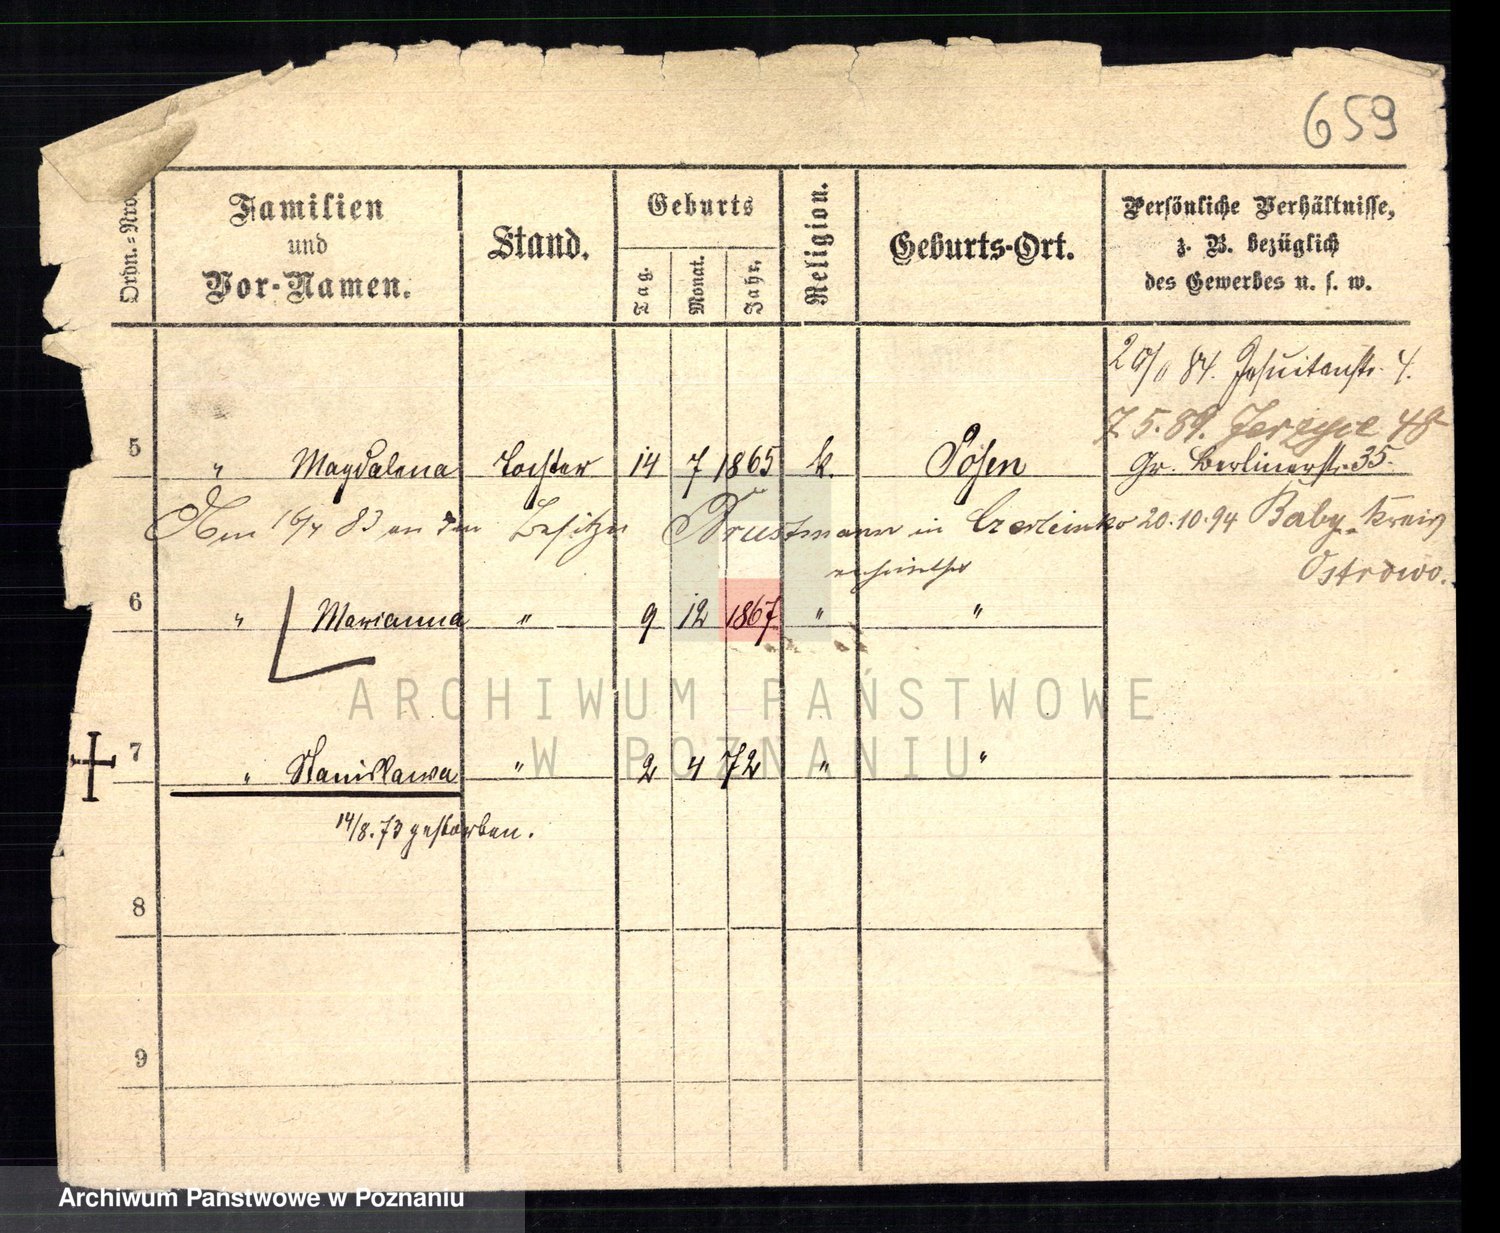 659
Ordn.=Nro.
Familien
und
Vor-Namen.
Stand.
Geburts
Tag.
Monat.
Jahr.
Religion.
Geburts-Ort.
Persönliche Verhältnisse,
z. B. bezüglich
des Gewerbes u. s. w.
84. Jesuitenstr. 4.
7.5.89. Jerzyce 48
5 " Magdalena Tochter 14 7 1865 k. Posen Gr. Berlinerstr. 35.
Am 16/4 83 an den Besitzer Brustmann in 20.10.94 Baby Kreis
verheirathet Ostrowo.
6 " Marianna " 9 12 1867 " "
ARCHIWUM PAŃSTWOWE
W POZNANIU
7 " Stanislawa " 2 4 72 " "
14/8.73 gestorben.
8
9
Archiwum Państwowe w Poznaniu